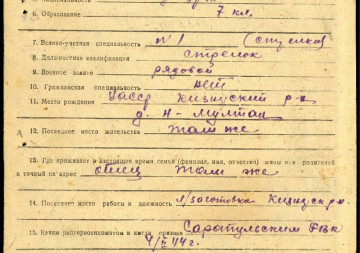 6. Образование 7 кл.
7. Военно-учетная специальность №1 (стрелков)
8. Должностная квалификация стрелок
9. Военное звание рядовой
10. Гражданская специальность нет
11. Место рождения УАССР Кизнеский р-н
д. Н-Мултан
12. Последнее место жительства Там же
13. Где проживает в настоящее время семья (фамилия, имя, отчество) жены или родителей
и точный их адрес отец там же
14. Последнее место работы и должность заготовка Кизнес р-н
15. Каким райгорвоенкоматом и когда призван Сарапульским РВК
44г.